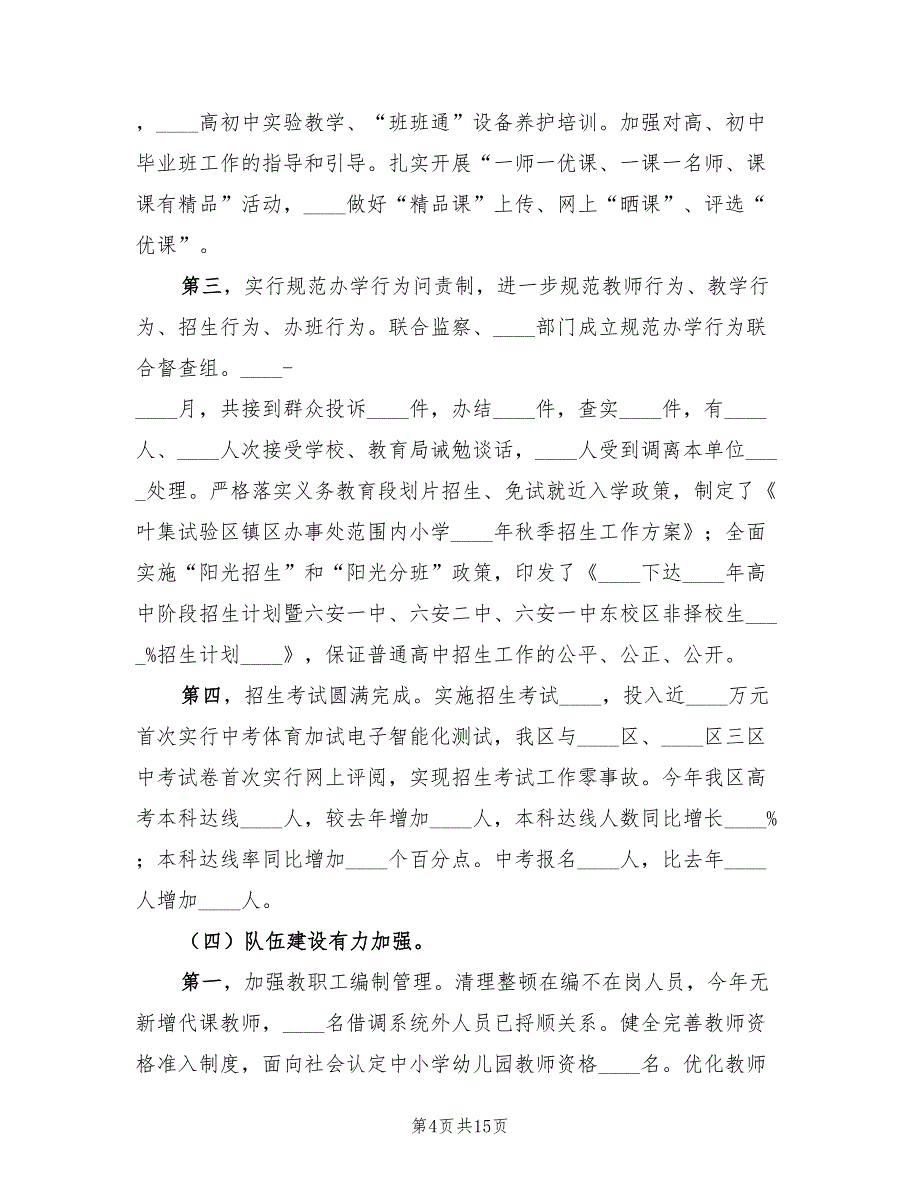 ，____高初中实验教学、“班班通”设备养护培训。加强对高、初中
毕业班工作的指导和引导。扎实开展“一师一优课、一课一名师、课
课有精品”活动，____做好“精品课”上传、网上“晒课”、评选“
优课”。
第三，实行规范办学行为问责制，进一步规范教师行为、教学行
为、招生行为、办班行为。联合监察、____部门成立规范办学行为联
合督查组。____-
____月，共接到群众投诉____件，办结____件，查实____件，有____
人、____人次接受学校、教育局诫勉谈话，____人受到调离本单位___
_处理。严格落实义务教育段划片招生、免试就近入学政策，制定了《
叶集试验区镇区办事处范围内小学____年秋季招生工作方案》；全面
实施“阳光招生”和“阳光分班”政策，印发了《____下达____年高
中阶段招生计划暨六安一中、六安二中、六安一中东校区非择校生___
_%招生计划____》，保证普通高中招生工作的公平、公正、公开。
第四，招生考试圆满完成。实施招生考试____，投入近____万元
首次实行中考体育加试电子智能化测试，我区与____区、____区三区
中考试卷首次实行网上评阅，实现招生考试工作零事故。今年我区高
考本科达线____人，较去年增加____人，本科达线人数同比增长____%
；本科达线率同比增加____个百分点。中考报名____人，比去年____
人增加____人。
（四）队伍建设有力加强。
第一，加强教职工编制管理。清理整顿在编不在岗人员，今年无
新增代课教师，____名借调系统外人员已捋顺关系。健全完善教师资
格准入制度，面向社会认定中小学幼儿园教师资格____名。优化教师
第4页共15页